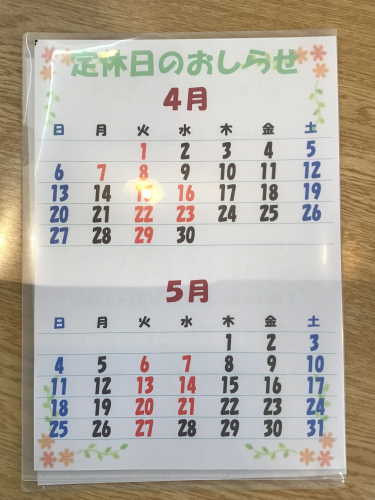 定休日のおしらせ
4月
日 月 火 水 木 金 土
1 2 3 4 5
6 7 8 9 10 11 12
13 14 15 16 17 18 19
20 21 22 23 24 25 26
27 28 29 30
5月
日 月 火 水 木 金 土
1 2 3
4 5 6 7 8 9 10
11 12 13 14 15 16 17
18 19 20 21 22 23 24
25 26 27 28 29 30 31